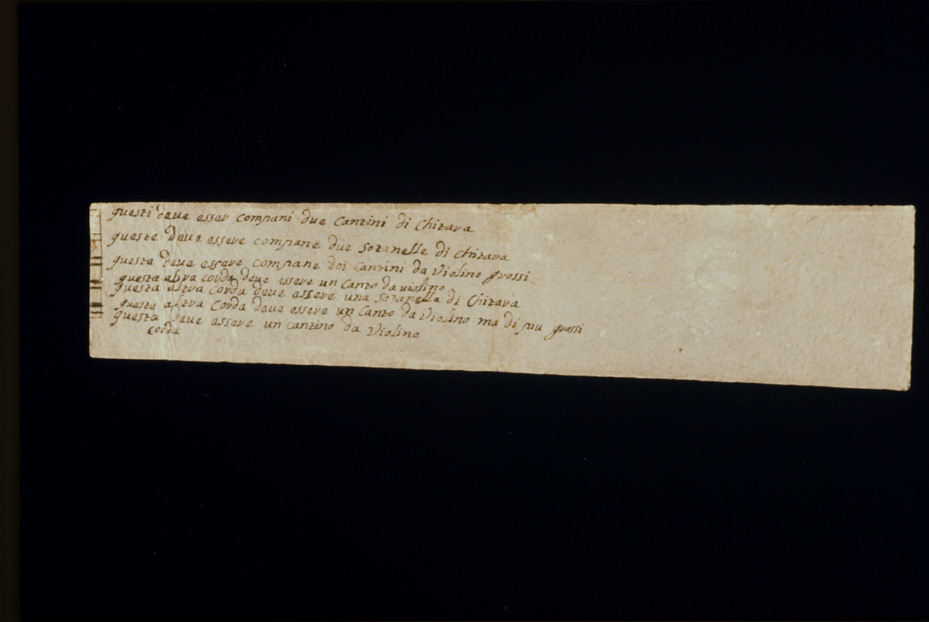 questi deve esser compani due Cantini di Chitara
queste deve essere compane due sotanelle di chitara
questa deve essere compane doi Cantini da Violino grossi
questa altra corda deve essere un Canto da violino
questa altra Corda deve essere una sotanella di Chitara
questa altra Corda deve essere un Canto da Violino ma di piu grossi
questa deve essere un cantino da Violino
Corda